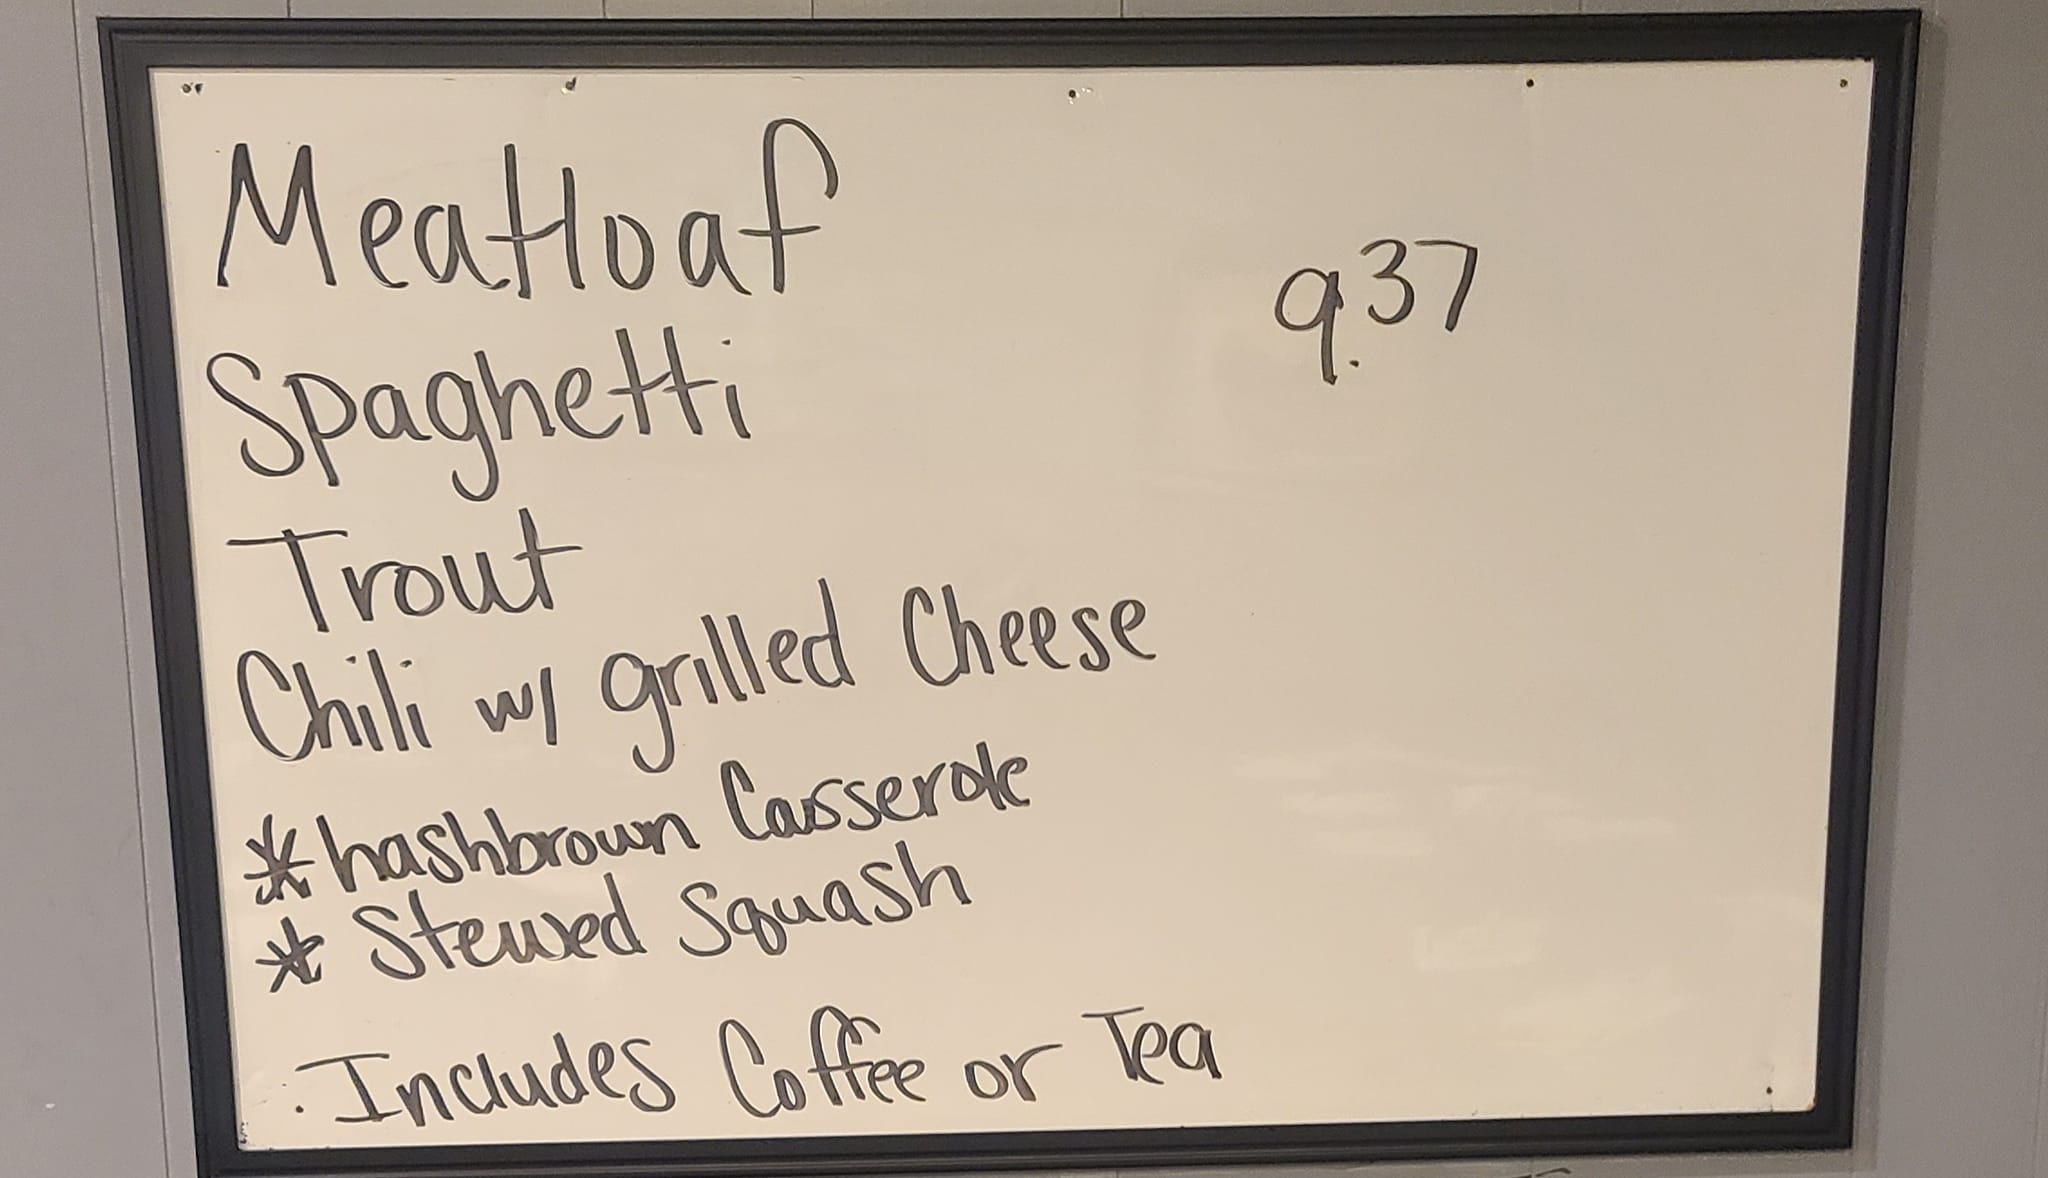 Meatloaf
9.37
Spaghetti
Trout
Chili w/ grilled Cheese
* hashbrown Casserole
* Stewed Squash
. Includes Coffee or Tea